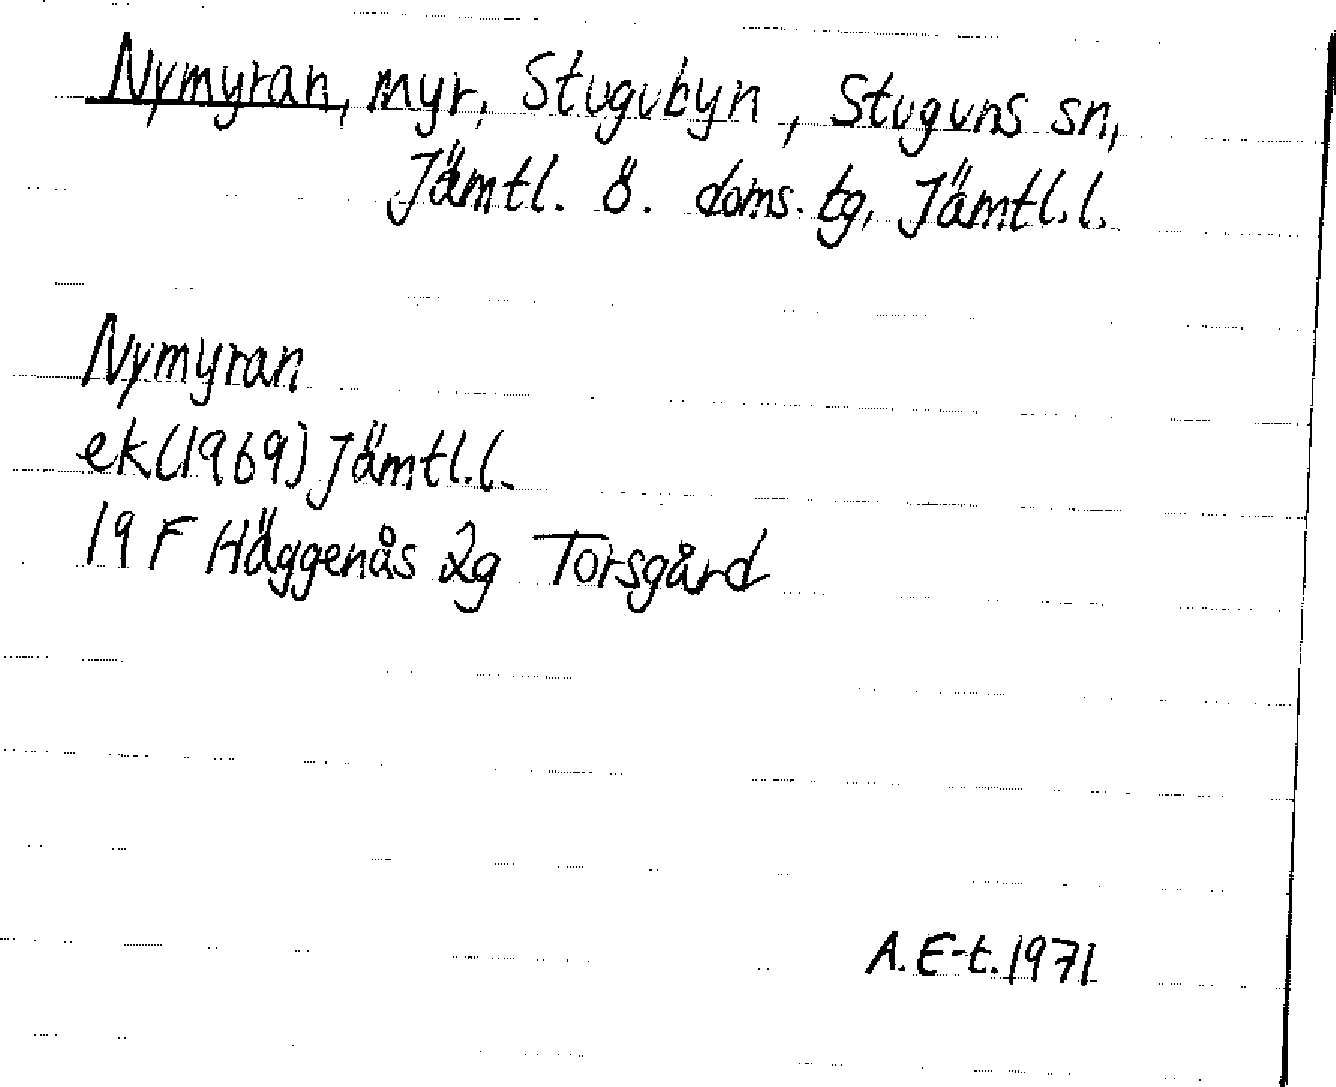 Nymyran, myr, Stugubyn, Stuguns sn,
Jämtl. ö. doms. tg, Jämtl.l.
Nymyran
ek(1969) Jämtl.l.
19 F Häggenås 2g Torsgård
A. E-t. 1971